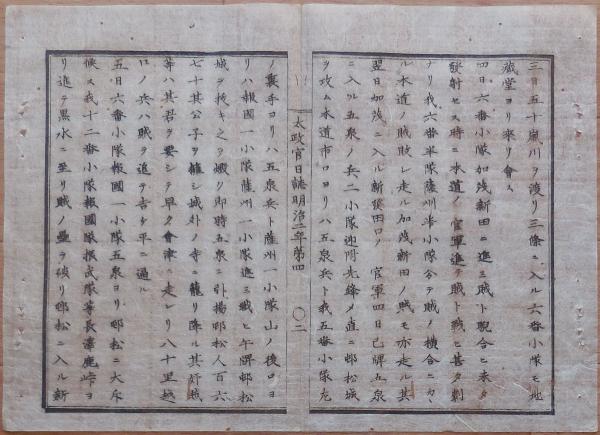 三日五十嵐川ヲ渡リ三條ニ入ル六番小隊モ地
藏堂ヨリ來リ會ス
四日六番小隊加茂新田ニ進ミ賊ト覘合ヒ未タ
發射セス時ニ本道ノ官軍進テ賊ト戰ヒ甚タ劇
ナリ我六番半隊薩州半小隊合テ賊ノ横合ニカヽ
ル本道ノ賊敗レ走ル加茂新田ノ賊モ亦走ル其
翌日加茂ニ入ル新發田口ノ官軍四日已牌五泉
ニ入ル五泉ノ兵二小隊迎附先鋒ノ直ニ邨松城
ヲ攻ム本道市口ヨリハ五泉兵ト我五番小隊左
太政官日誌明治二年第四
〇二
ノ裏手ヨリハ五泉兵ト薩州一小隊山ノ後ロヨ
リハ報國一小隊薩州一小隊進ミ戰ヒ午牌邨松
城ヲ拔キ之ヲ燬リ即時五泉ニ引揚邨松人百六
七十其公子ヲ擁シ城外ノ寺ニ籠リ降ル其奸賊
等ハ其君ヲ要シテ早ク會津ニ走レリ八十里越
口ノ兵ハ賊ヲ追テ吉ケ平ニ過ル
五日六番小隊報國一小隊五泉ヨリ邨松ニ大斥
候ス我十二番小隊報國隊振武隊等長澤鹿峠ヨ
リ進テ黒水ニ至リ賊ノ壘ヲ破リ邨松ニ入ル新